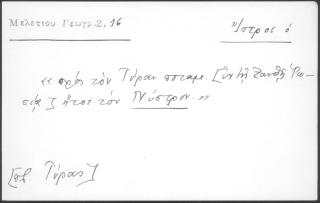 Μελετίου Γεωγρ.2, 16
Ἴστρος ὁ
« πρὸς τὸν Τύραν ποταμ. [ἐν τῇ Σανθῇ Ῥω-
σίᾳ] ἤτοι τὸν Νύστρον. »
[πβ. Τύρας]